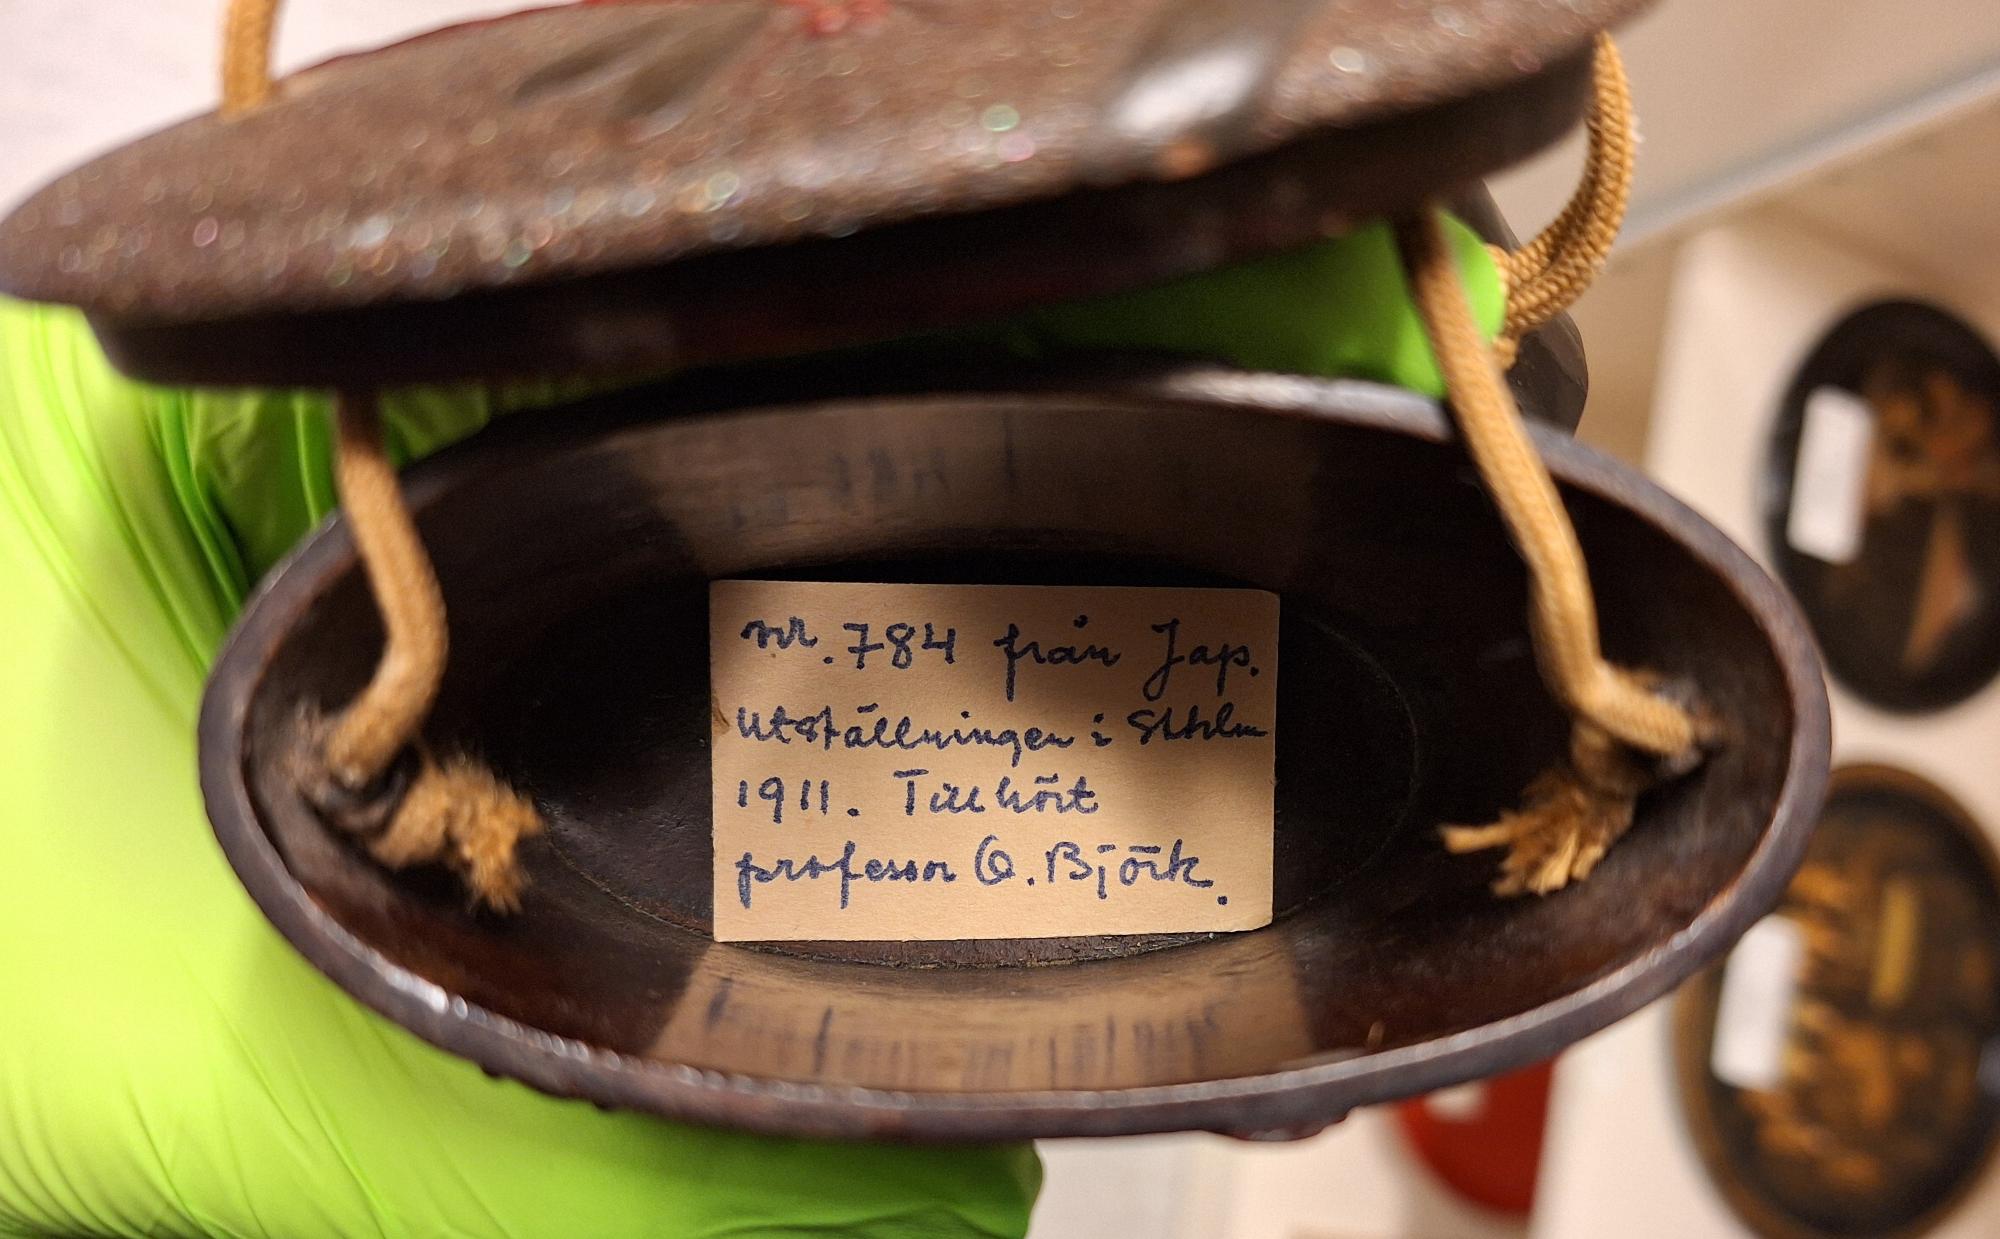 nr. 784 från Jap.
utställningen i Sthlm
1911. Tillhört
professor O. Björk.